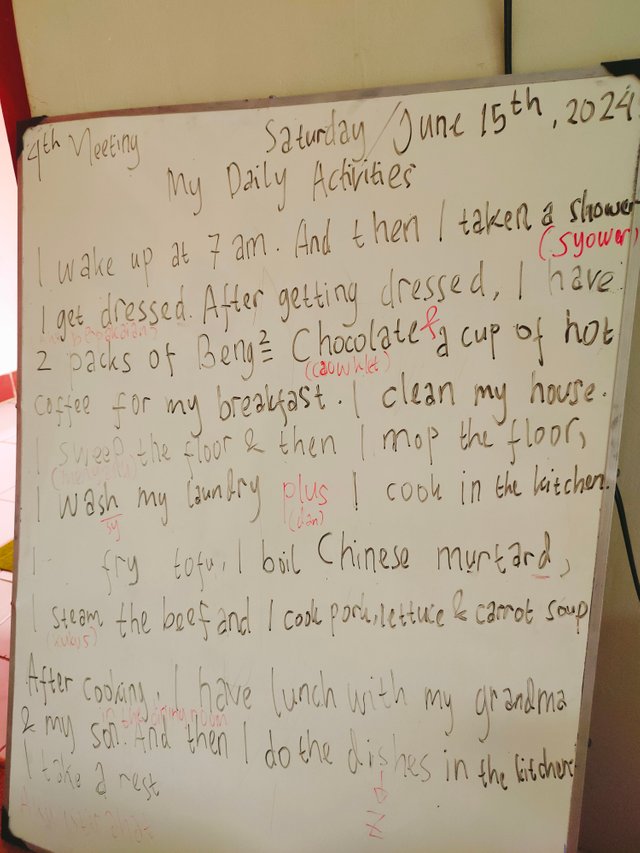 4th Meeting
Saturday/June 15th, 2024
My Daily Activities
I wake up at 7 am. And then I taken a shower
(syower)
I get dressed. After getting dressed, I have
2 packs of Beng² Chocolate & a cup of hot
(caowklet)
coffee for my breakfast. I clean my house.
I sweep the floor & then I mop the floor,
I wash my laundry plus I cook in the kitchen.
sy
(dan)
I fry tofu, I boil Chinese murtard,
I steam the beef and I cook pork, lettuce & carrot soup
(kukus)
After cooking, I have lunch with my grandma
in the dining room
& my son. And then I do the dishes in the kitchen
I take a rest